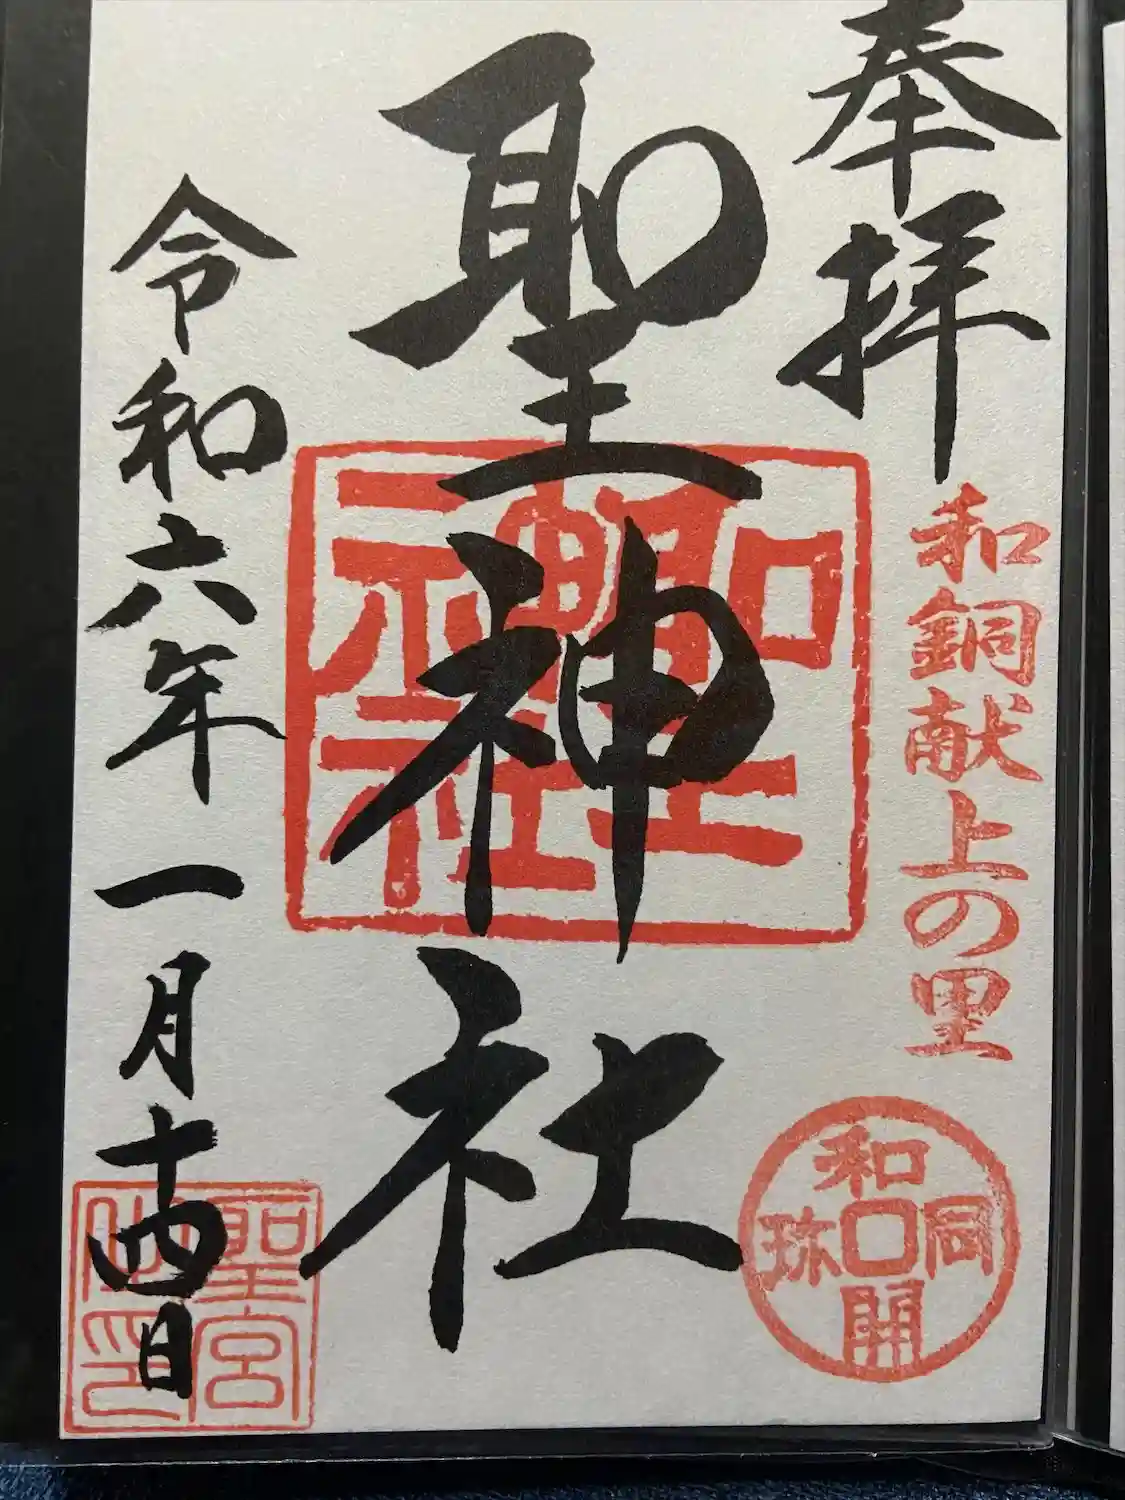 奉拝
和銅献上の里
和同開珎
聖神社
聖神社
令和六年一月十四日
聖宮
之印